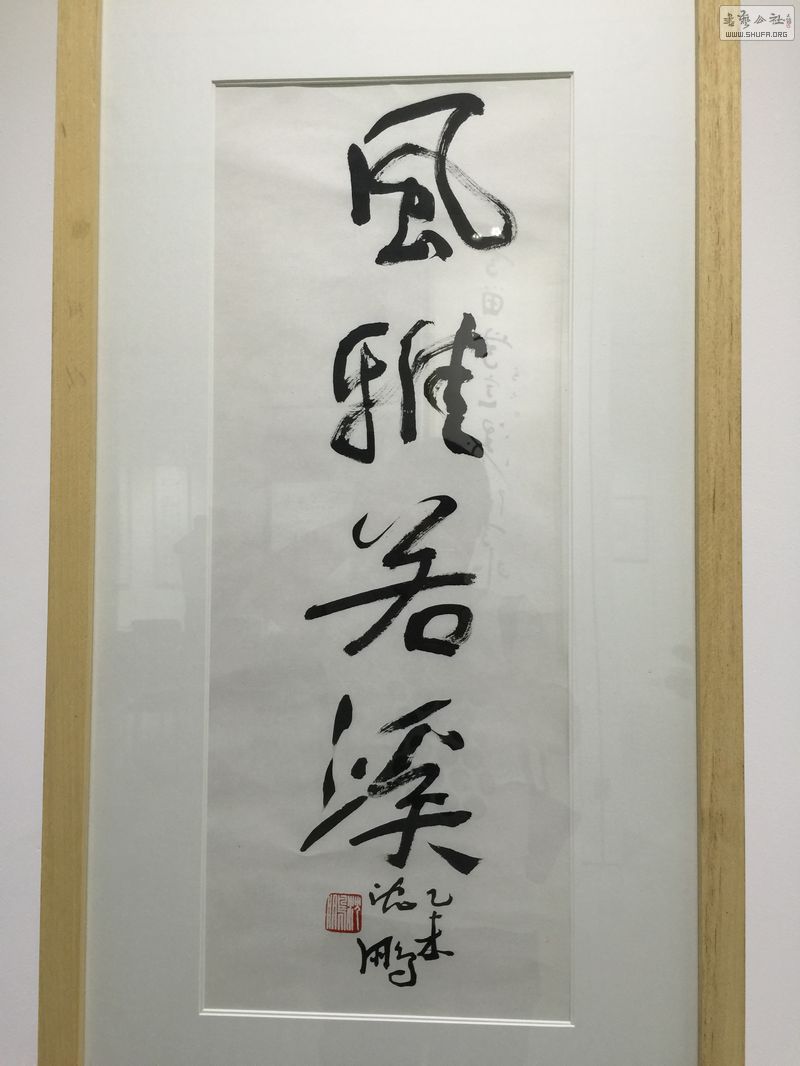 風雅若溪
乙未
沈鵬
書藝公社
WWW.SHUFA.ORG